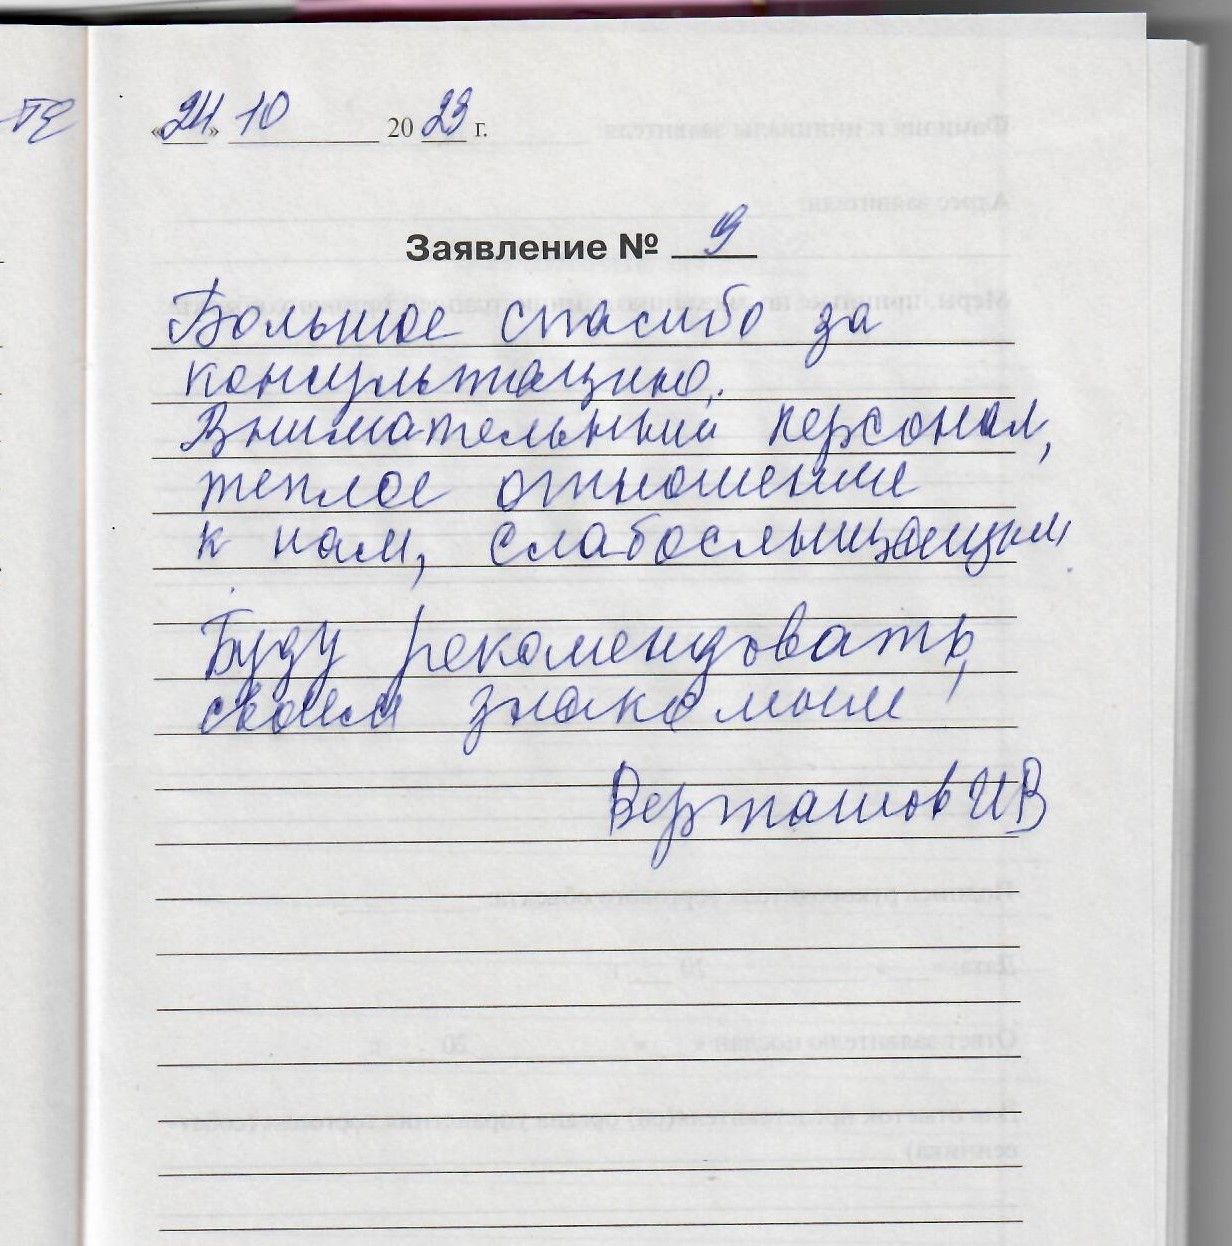 «24» 10 2023 г.
Заявление № 9
Большое спасибо за
консультацию.
Внимательный персонал,
теплое отношение
к нам, слабослышащим.
Буду рекомендовать
своим знакомым
ИВ